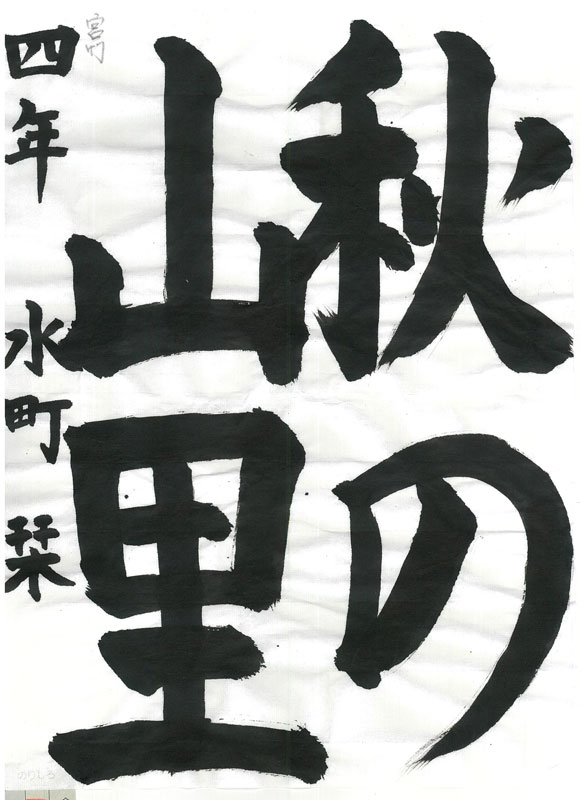 秋の
山里
四年 水町 栞
宮竹